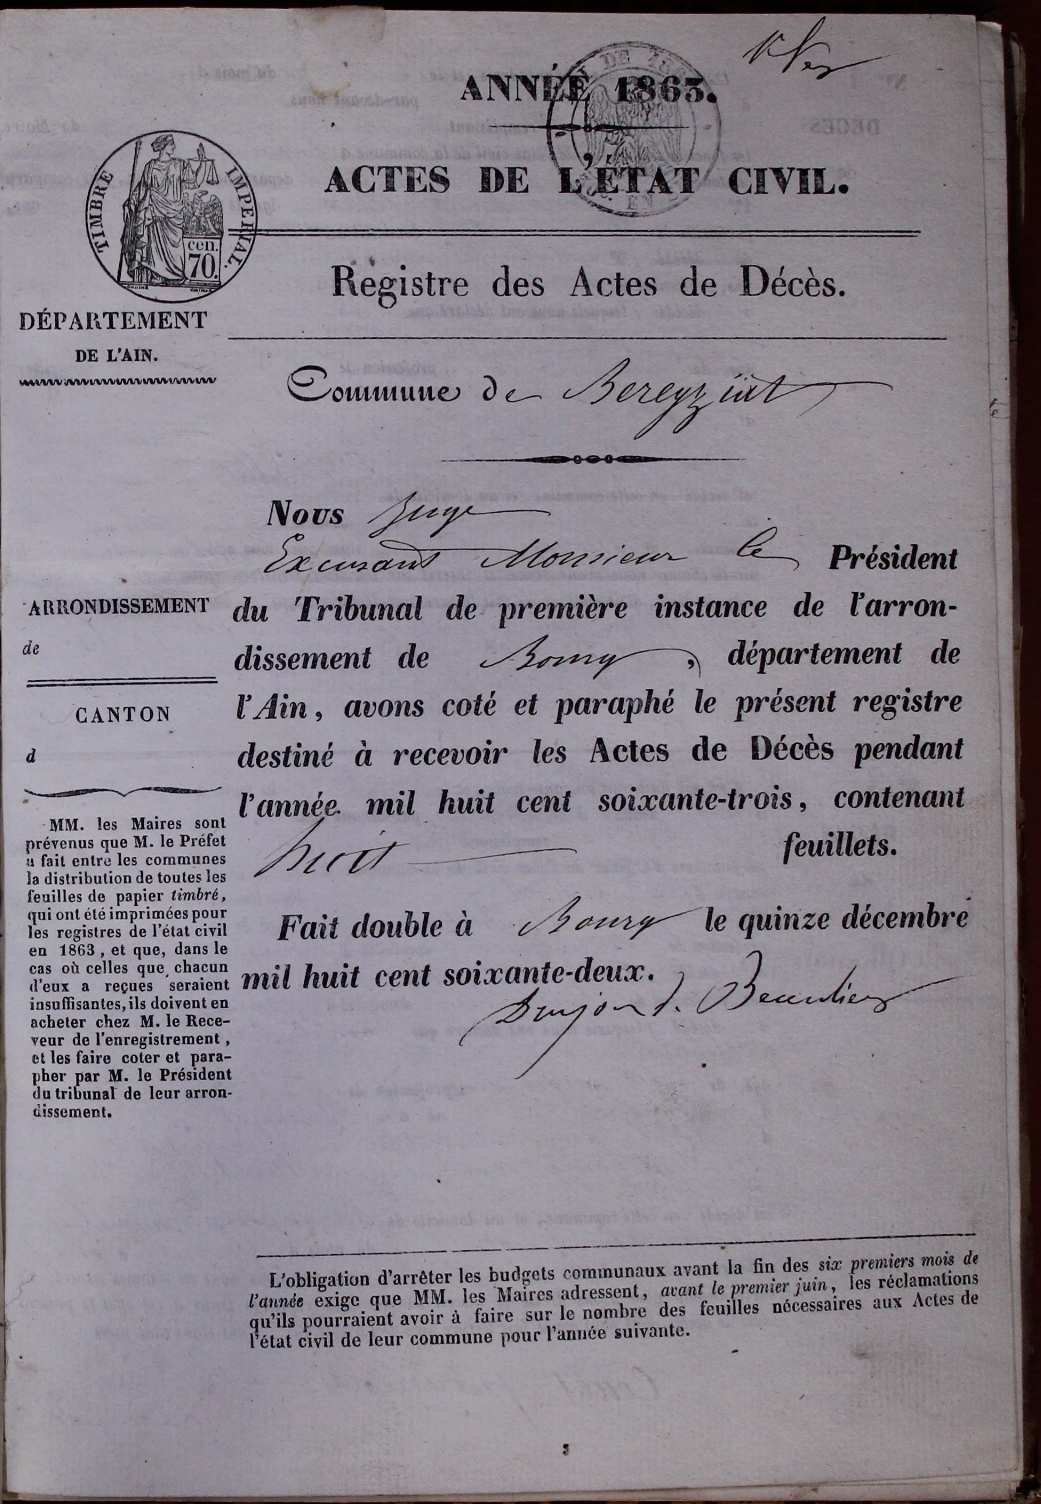 ANNÉE 1863.
ACTES DE L'ÉTAT CIVIL.
TIMBRE IMPÉRIAL.
cen.
70.
Registre des Actes de Décès.
DÉPARTEMENT
DE L'AIN.
Commune de Bereyziat
Nous Juge
Excusant Monsieur le Président
du Tribunal de première instance de l'arron-
dissement de Bourg, département de
l'Ain, avons coté et paraphé le présent registre
destiné à recevoir les Actes de Décès pendant
l'année mil huit cent soixante-trois, contenant
huit feuillets.
Fait double à Bourg le quinze décembre
mil huit cent soixante-deux.
ARRONDISSEMENT
de
CANTON
d
MM. les Maires sont
prévenus que M. le Préfet
a fait entre les communes
la distribution de toutes les
feuilles de papier timbré,
qui ont été imprimées pour
les registres de l'état civil
en 1863, et que, dans le
cas où celles que chacun
d'eux a reçues seraient
insuffisantes, ils doivent en
acheter chez M. le Rece-
veur de l'enregistrement,
et les faire coter et para-
pher par M. le Président
du tribunal de leur arron-
dissement.
L'obligation d'arrêter les budgets communaux avant la fin des six premiers mois de
l'année exige que MM. les Maires adressent, avant le premier juin, les réclamations
qu'ils pourraient avoir à faire sur le nombre des feuilles nécessaires aux Actes de
l'état civil de leur commune pour l'année suivante.